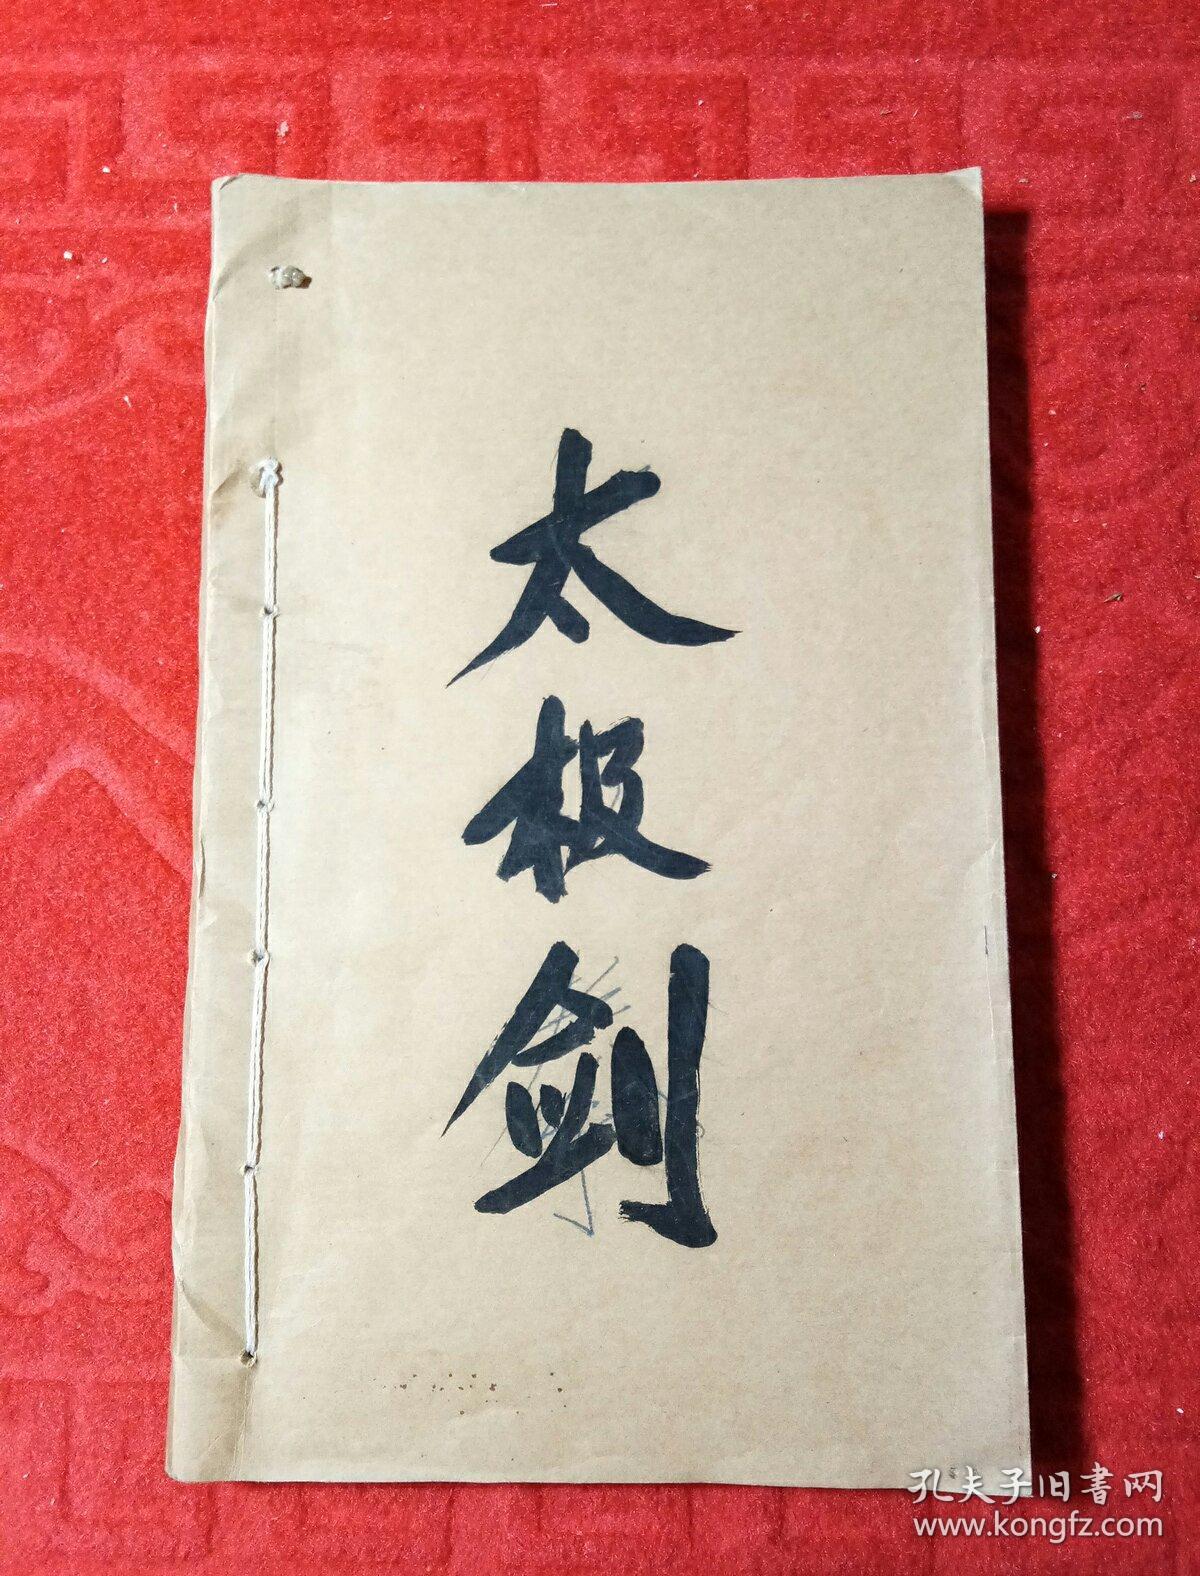 太
极
剑
孔夫子旧書网
www.kongfz.com